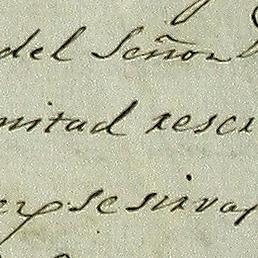 del Señor
mitad reser
se sirva